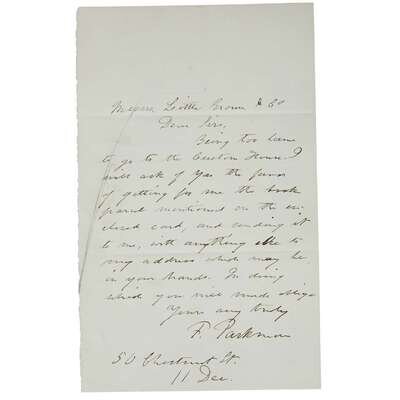 Messrs Little Brown & Co
Dear Sirs,
Being too lame
to go to the Custom House I
will ask of you the favor
of getting for me the book
parcel mentioned on the en-
closed card, and sending it
to me, with anything else to
my address which may be
in your hands. In doing
which you will much oblige
Yours very truly
F. Parkman
50 Chestnut St.
11 Dec.